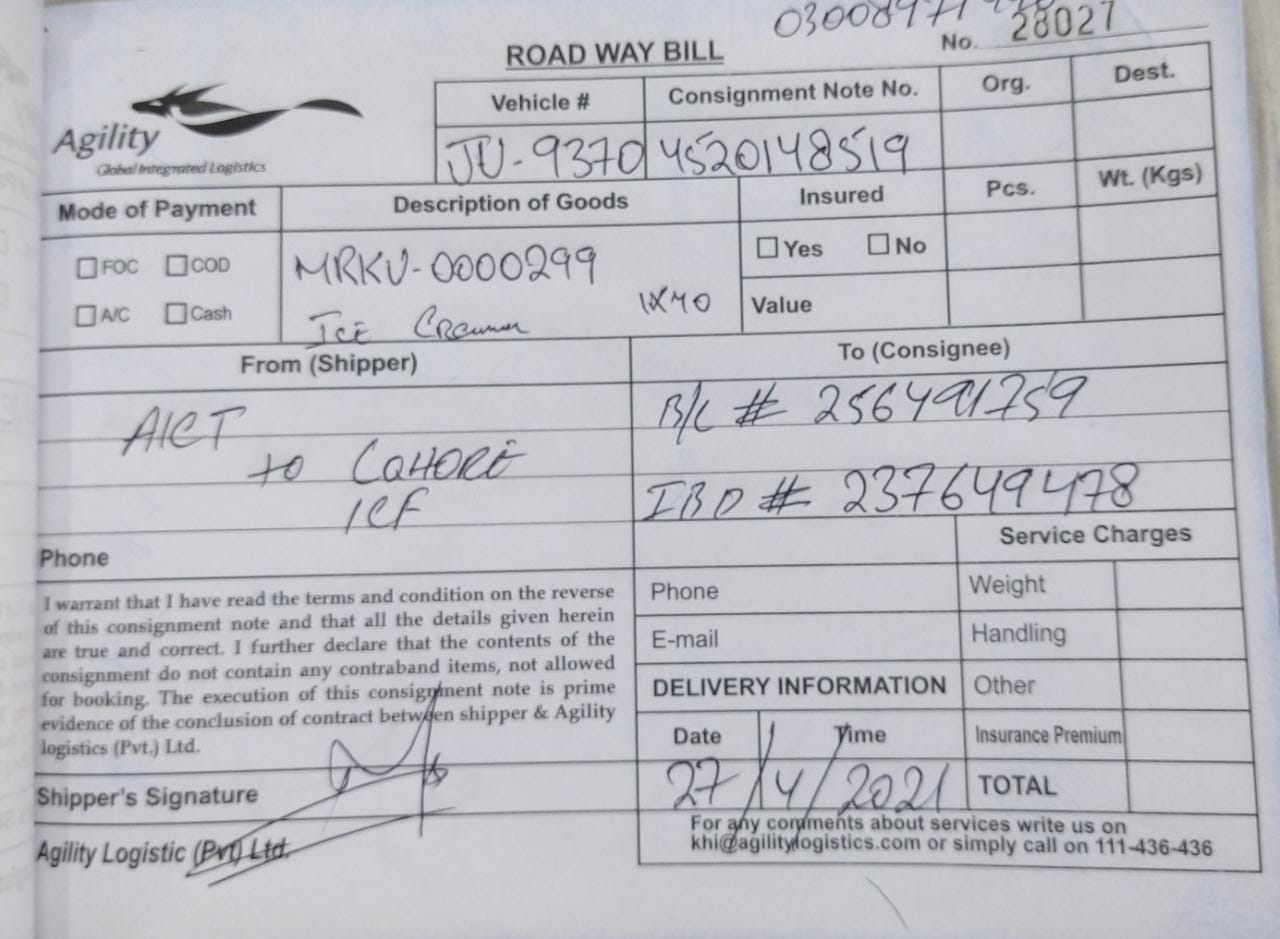 No. 28027
ROAD WAY BILL
Agility
Global Integrated Logistics
Vehicle # Consignment Note No. Org. Dest.
JU-9370 4520148519
Mode of Payment Description of Goods Insured Pcs. Wt. (Kgs)
FOC COD MRKU-0000299 Yes No
A/C Cash ICE 1X40 Value
From (Shipper) To (Consignee)
AICT B/L # 256491759
to LAHORE
ICF IBD # 237649478
Phone Service Charges
I warrant that I have read the terms and condition on the reverse
of this consignment note and that all the details given herein
are true and correct. I further declare that the contents of the
consignment do not contain any contraband items, not allowed
for booking. The execution of this consignment note is prime
evidence of the conclusion of contract between shipper & Agility
logistics (Pvt.) Ltd.
Phone Weight
E-mail Handling
DELIVERY INFORMATION Other
Date Time Insurance Premium
27/4/2021 TOTAL
Shipper's Signature
Agility Logistic (Pvt) Ltd.
For any comments about services write us on
khi@agilitylogistics.com or simply call on 111-436-436